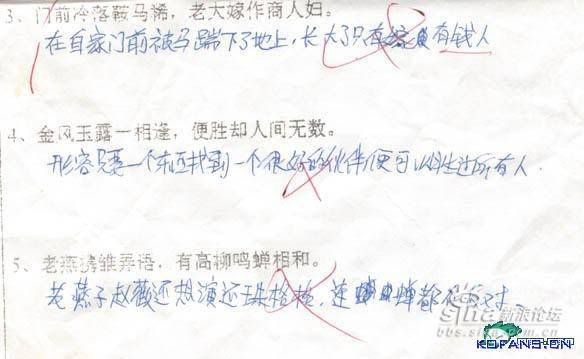 3、门前冷落鞍马稀，老大嫁作商人妇。
在自家门前被马踹下了地上，长大了只有有钱人
4、金风玉露一相逢，便胜却人间无数。
形容只要一个东西找到一个很好的伙伴便可以胜过所有人.
5、老燕携雏弄语，有高柳鸣蝉相和。
老燕子赵薇还想演还珠格格，连蝉都对.
sina 新浪论坛
KDFANS.CN